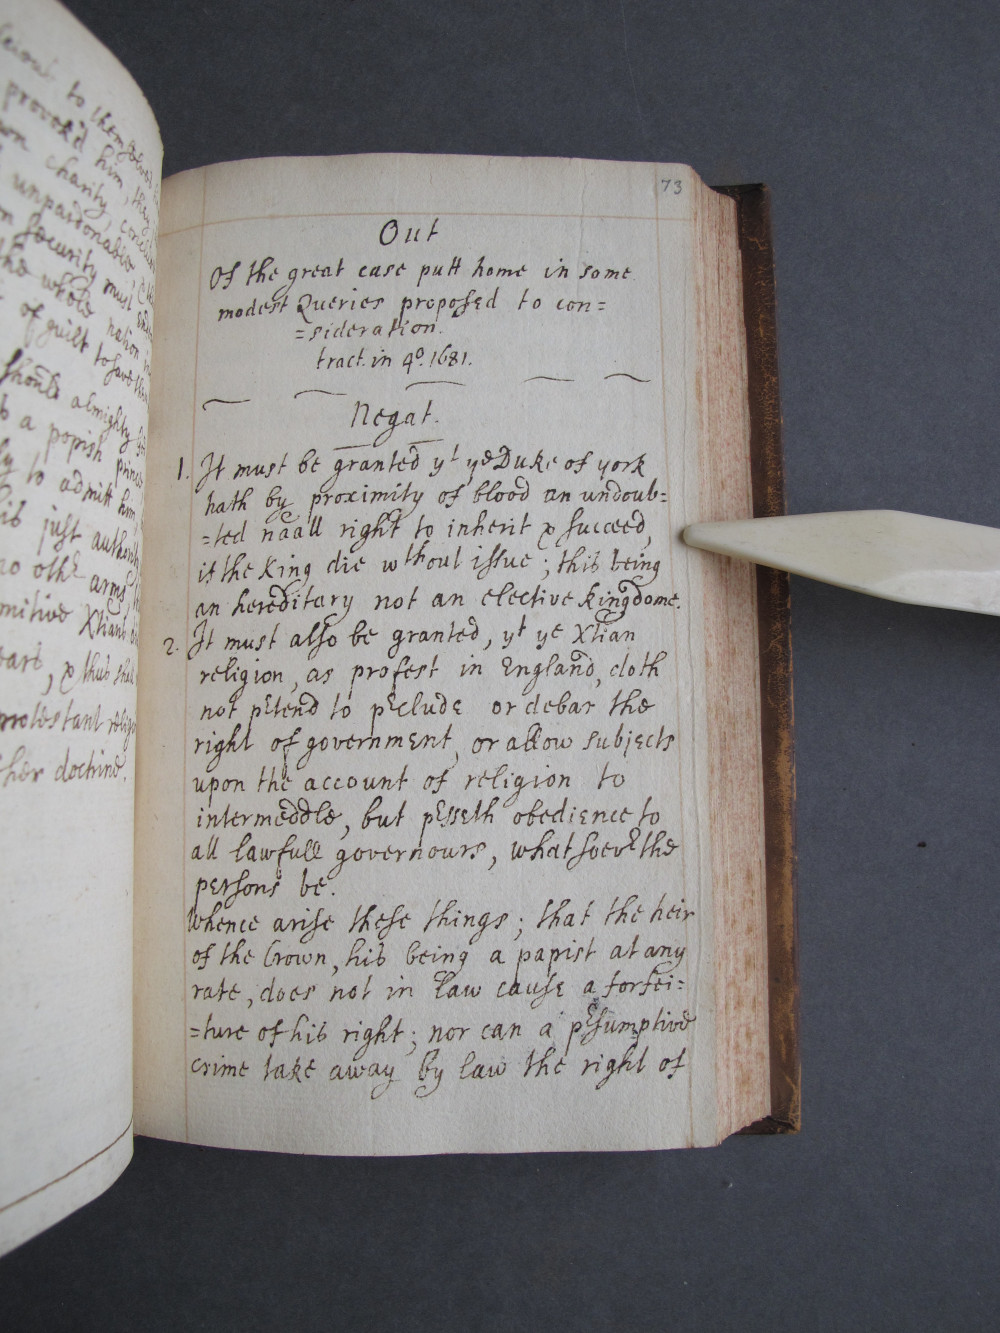 to them
provok'd him, they
charity, conclude
unpardonable,
security must
the whole nation
of guilt to
should almighty
a popish prince
to admitt him
just authority
no othr arms
Xtians
, & thus shall
protestant religi
her doctrine.
73
Out
Of the great case putt home in some
modest Queries proposed to con=
=sideration.
tract. in 4o. 1681.
Negat.
1. It must be granted yt ye Duke of york
hath by proximity of blood an undoub=
=ted naall right to inherit & succeed,
if the King die wthout issue; this being
an hereditary not an elective kingdome.
2. It must also be granted, yt ye Xtian
religion, as profest in England, doth
not pretend to preclude or debar the
right of government, or allow subjects
upon the account of religion to
intermeddle, but presseth obedience to
all lawfull governours, whatsoevr the
persons be.
Whence arise these things; that the heir
of the Crown, his being a papist at any
rate, does not in law cause a forfei=
=ture of his right; nor can a presumptive
crime take away by law the right of